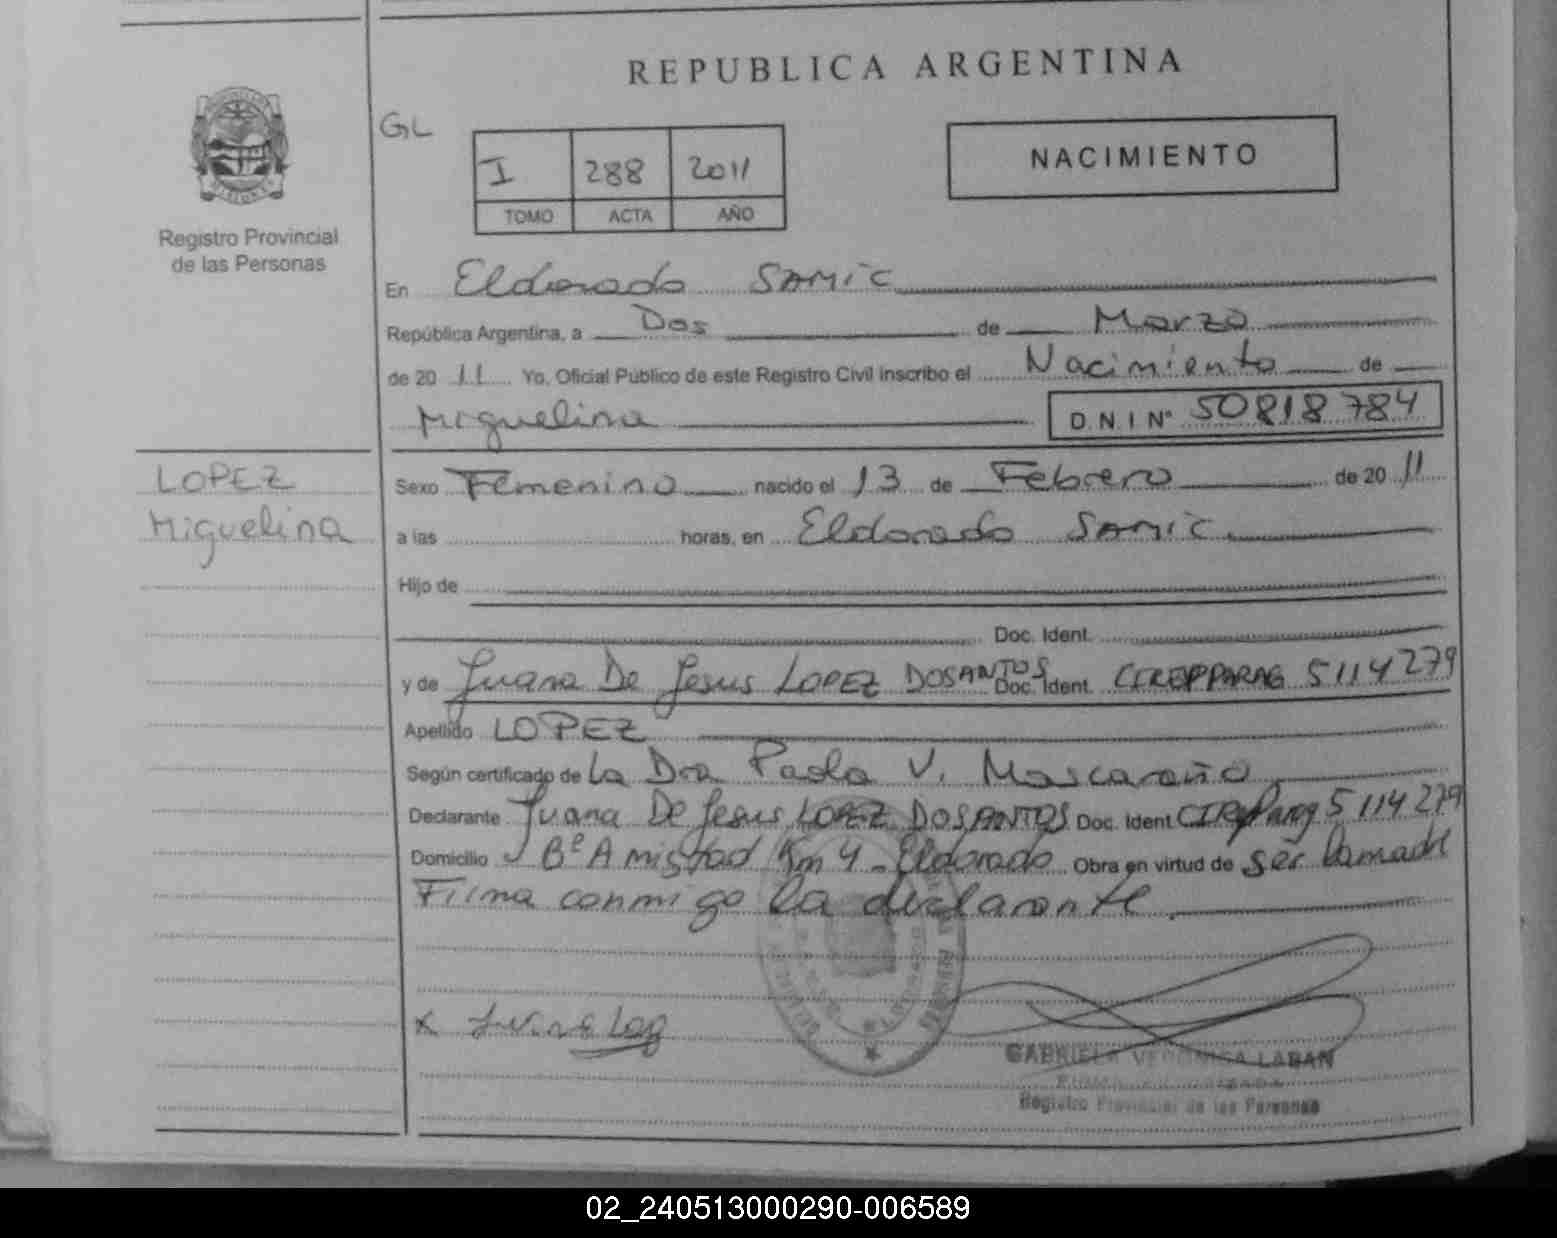 REPUBLICA ARGENTINA
GL
I 288 2011
TOMO ACTA AÑO
NACIMIENTO
Registro Provincial
de las Personas
En Eldorado SAMIC
República Argentina, a Dos de Marzo
de 20 11 Yo, Oficial Público de este Registro Civil inscribo el Nacimiento de
Miguelina D.N.I Nº 50818784
LOPEZ
Miguelina
Sexo Femenino nacido el 13 de Febrero de 20 11
a las horas, en Eldorado SAMIC
Hijo de
Doc. Ident.
y de Juana De Jesus LOPEZ DOSANTOS Doc. Ident. CIREPPARAG 5114279
Apellido LOPEZ
Según certificado de La Dra Paola V. Mascaraño
Declarante Juana De Jesus LOPEZ DOSANTOS Doc. Ident CIRepParag 5114279
Domicilio Bº Amistad Km 4 - Eldorado Obra en virtud de ser la madre
Firma conmigo la declarante
x Juana Lop
GABRIELA VERONICA LABAN
Registro Provincial de las Personas
02_240513000290-006589